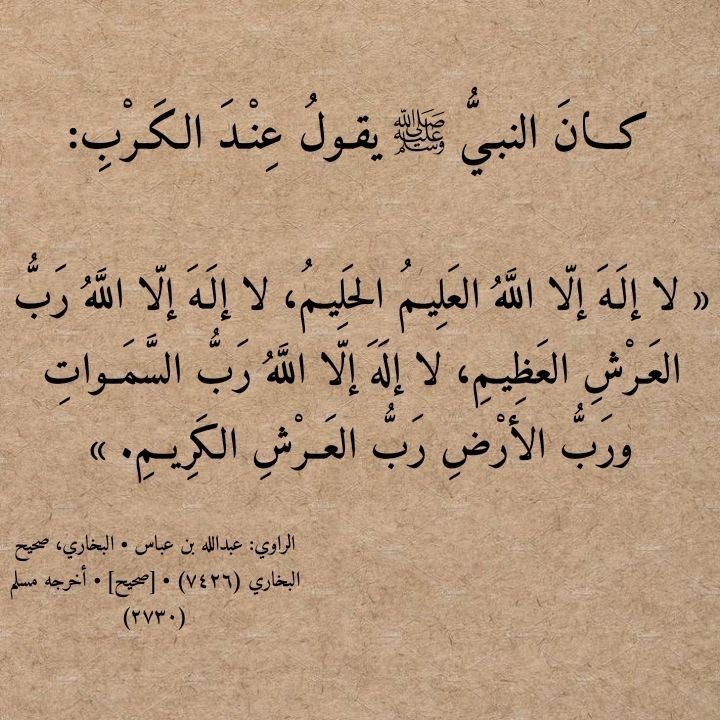 كــانَ النبيُّ ﷺ يقـولُ عِنْـدَ الـكَـرْبِ:
« لا إلَـهَ إلّا اللَّهُ العَلِيـمُ الحَلِيـمُ، لا إلَـهَ إلّا اللَّهُ رَبُّ
العَـرْشِ العَظِيـمِ، لا إلَهَ إلّا اللَّهُ رَبُّ السَّمَـواتِ
ورَبُّ الأرْضِ رَبُّ العَــرْشِ الكَرِيــمِ. »
الراوي: عبدالله بن عباس • البخاري، صحيح
البخاري (٧٤٢٦) • [صحيح] • أخرجه مسلم
(٢٧٣٠)